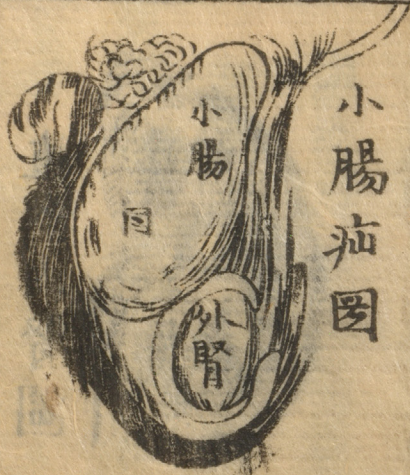 小腸疝圖
小腸
外腎